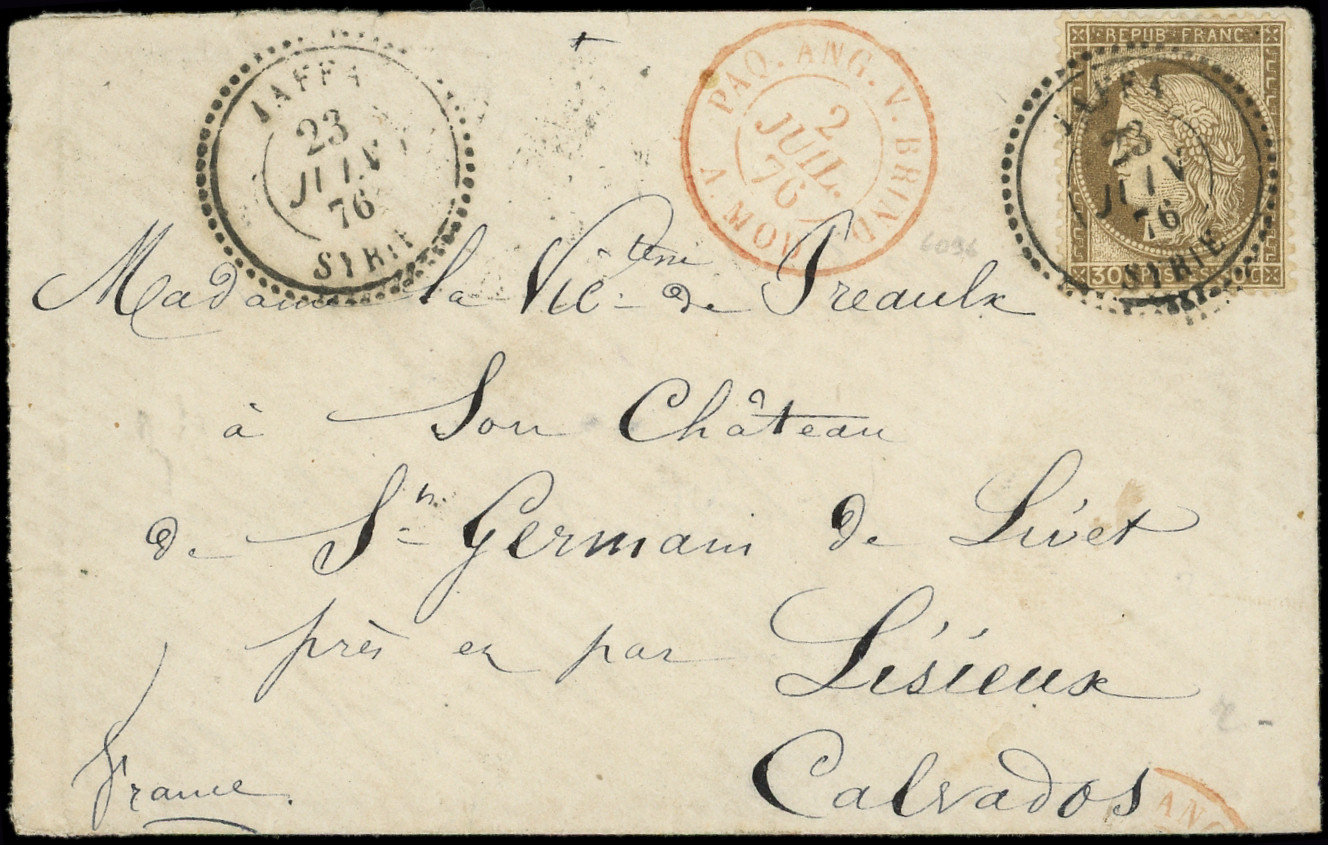 JAFFA
23
JUIN
76
SYRIE
PAQ. ANG. V. BRIND.
2
JUIL.
76
A MOD.
REPUB. FRANC.
30 POSTES 30 C
JAFFA
23
JUIN
76
SYRIE
6096
Madame la Vic.tesse de Preaulx
à Son Château
de St Germain de Livet
près et par Lisieux
Calvados
France.
ANG